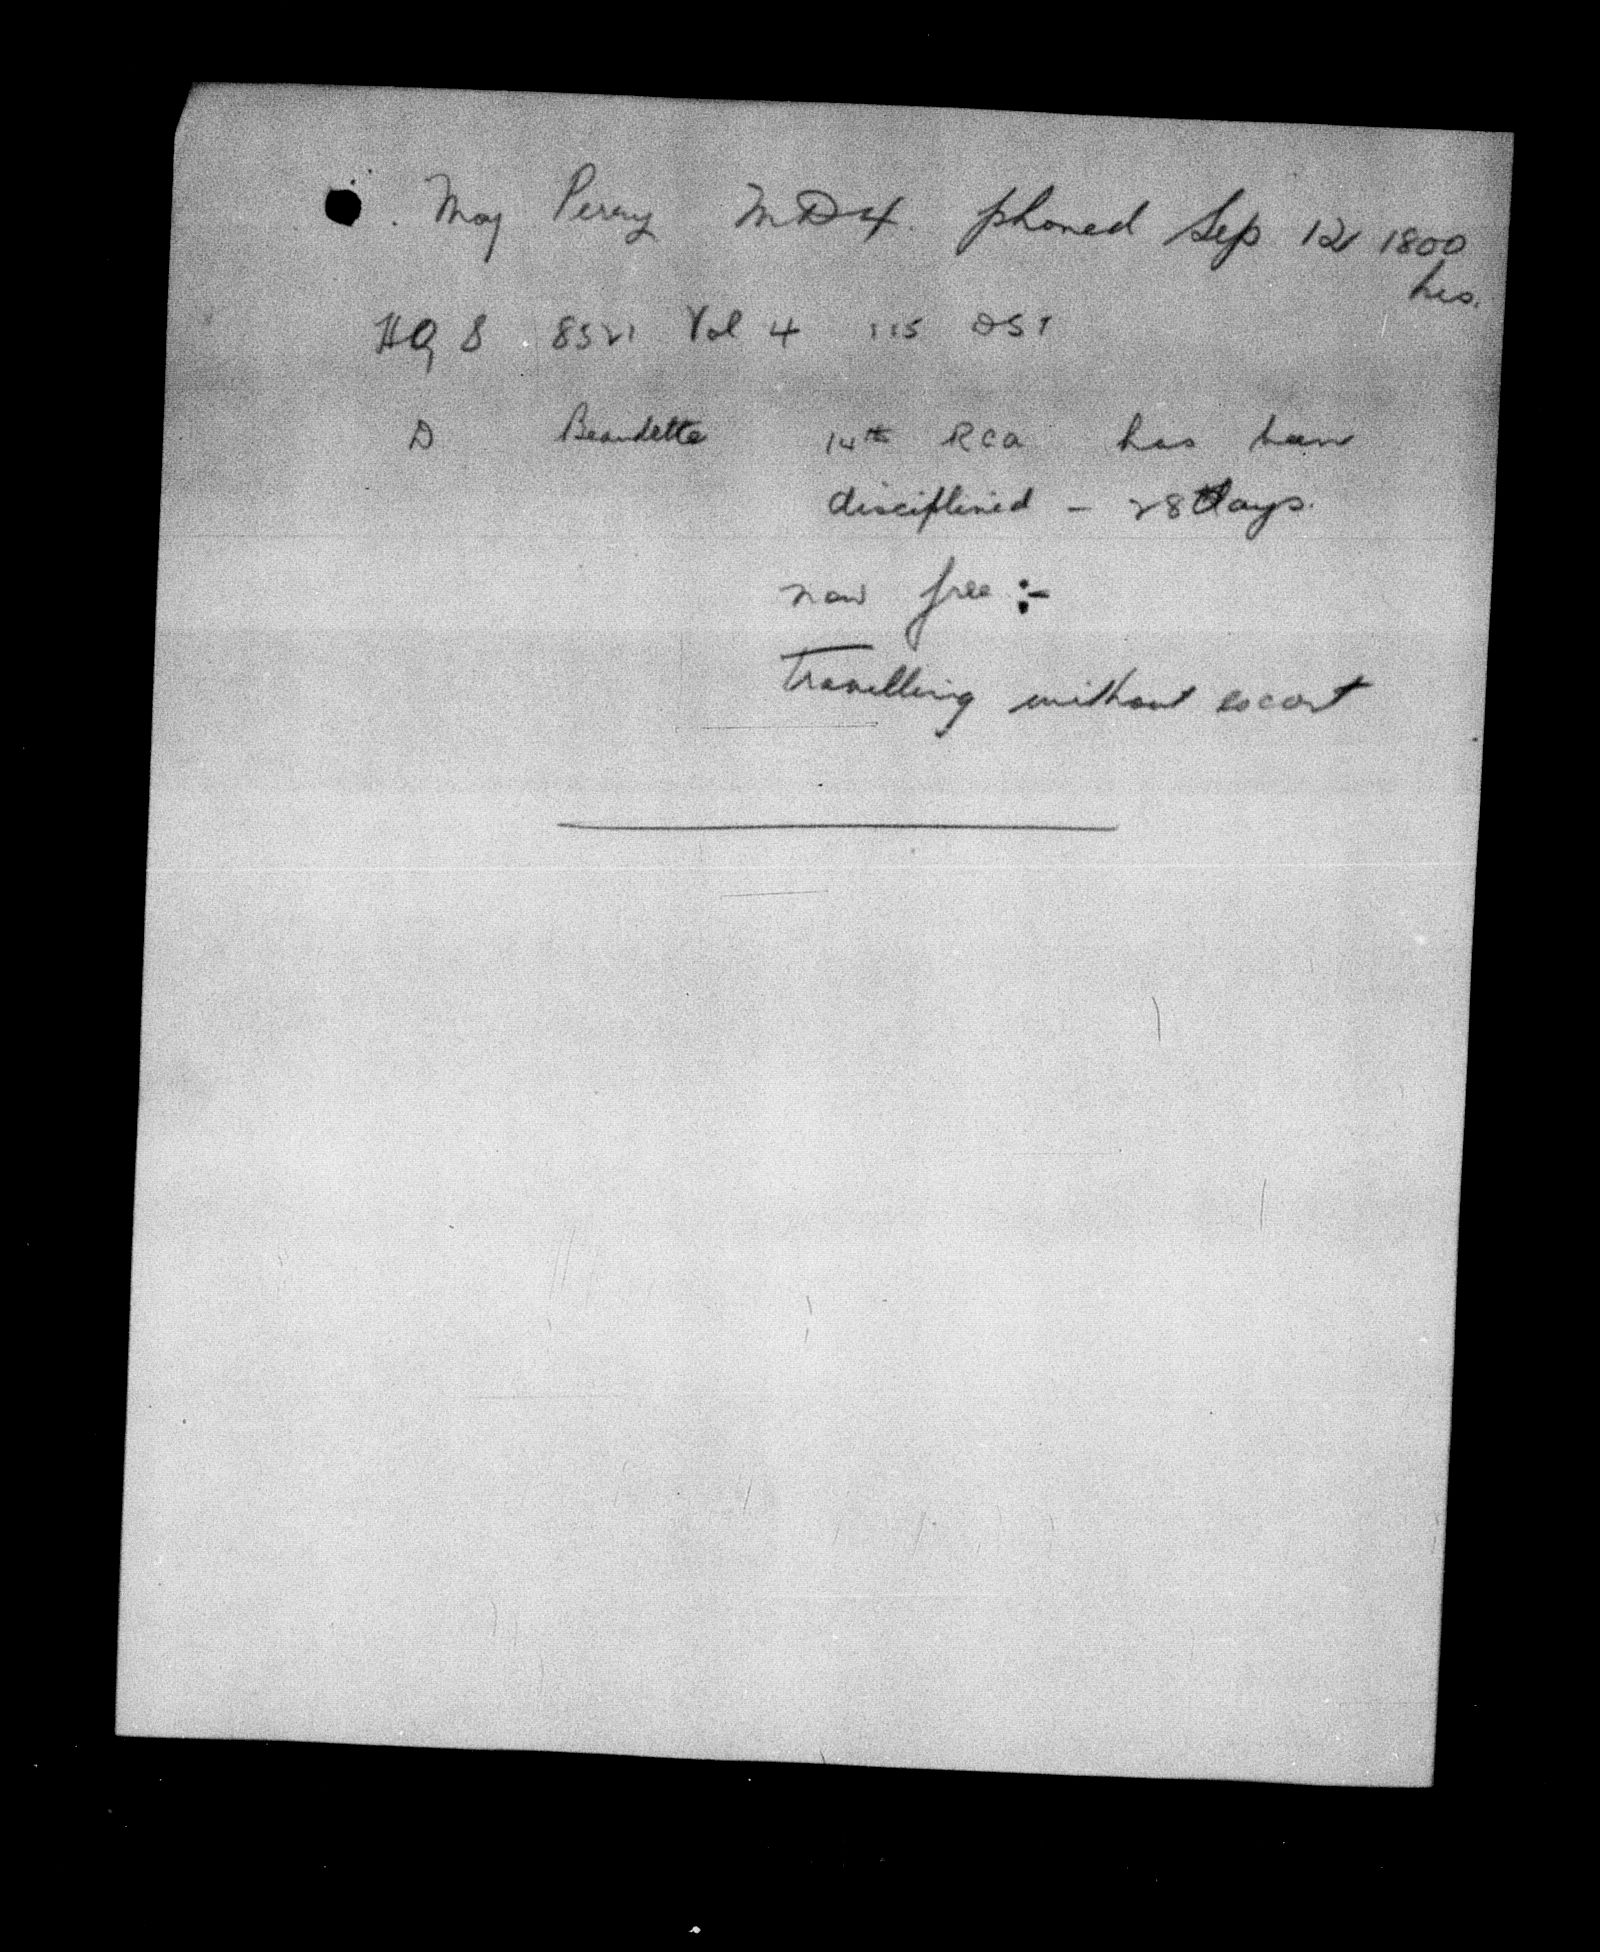 Maj Perry MD4. phoned Sep 12 1800
hrs.
HQ S 8521 Vol 4 115 DST
D Beaudette 14th RCA has been
disciplined - 28 days.
now free :-
Travelling without escort